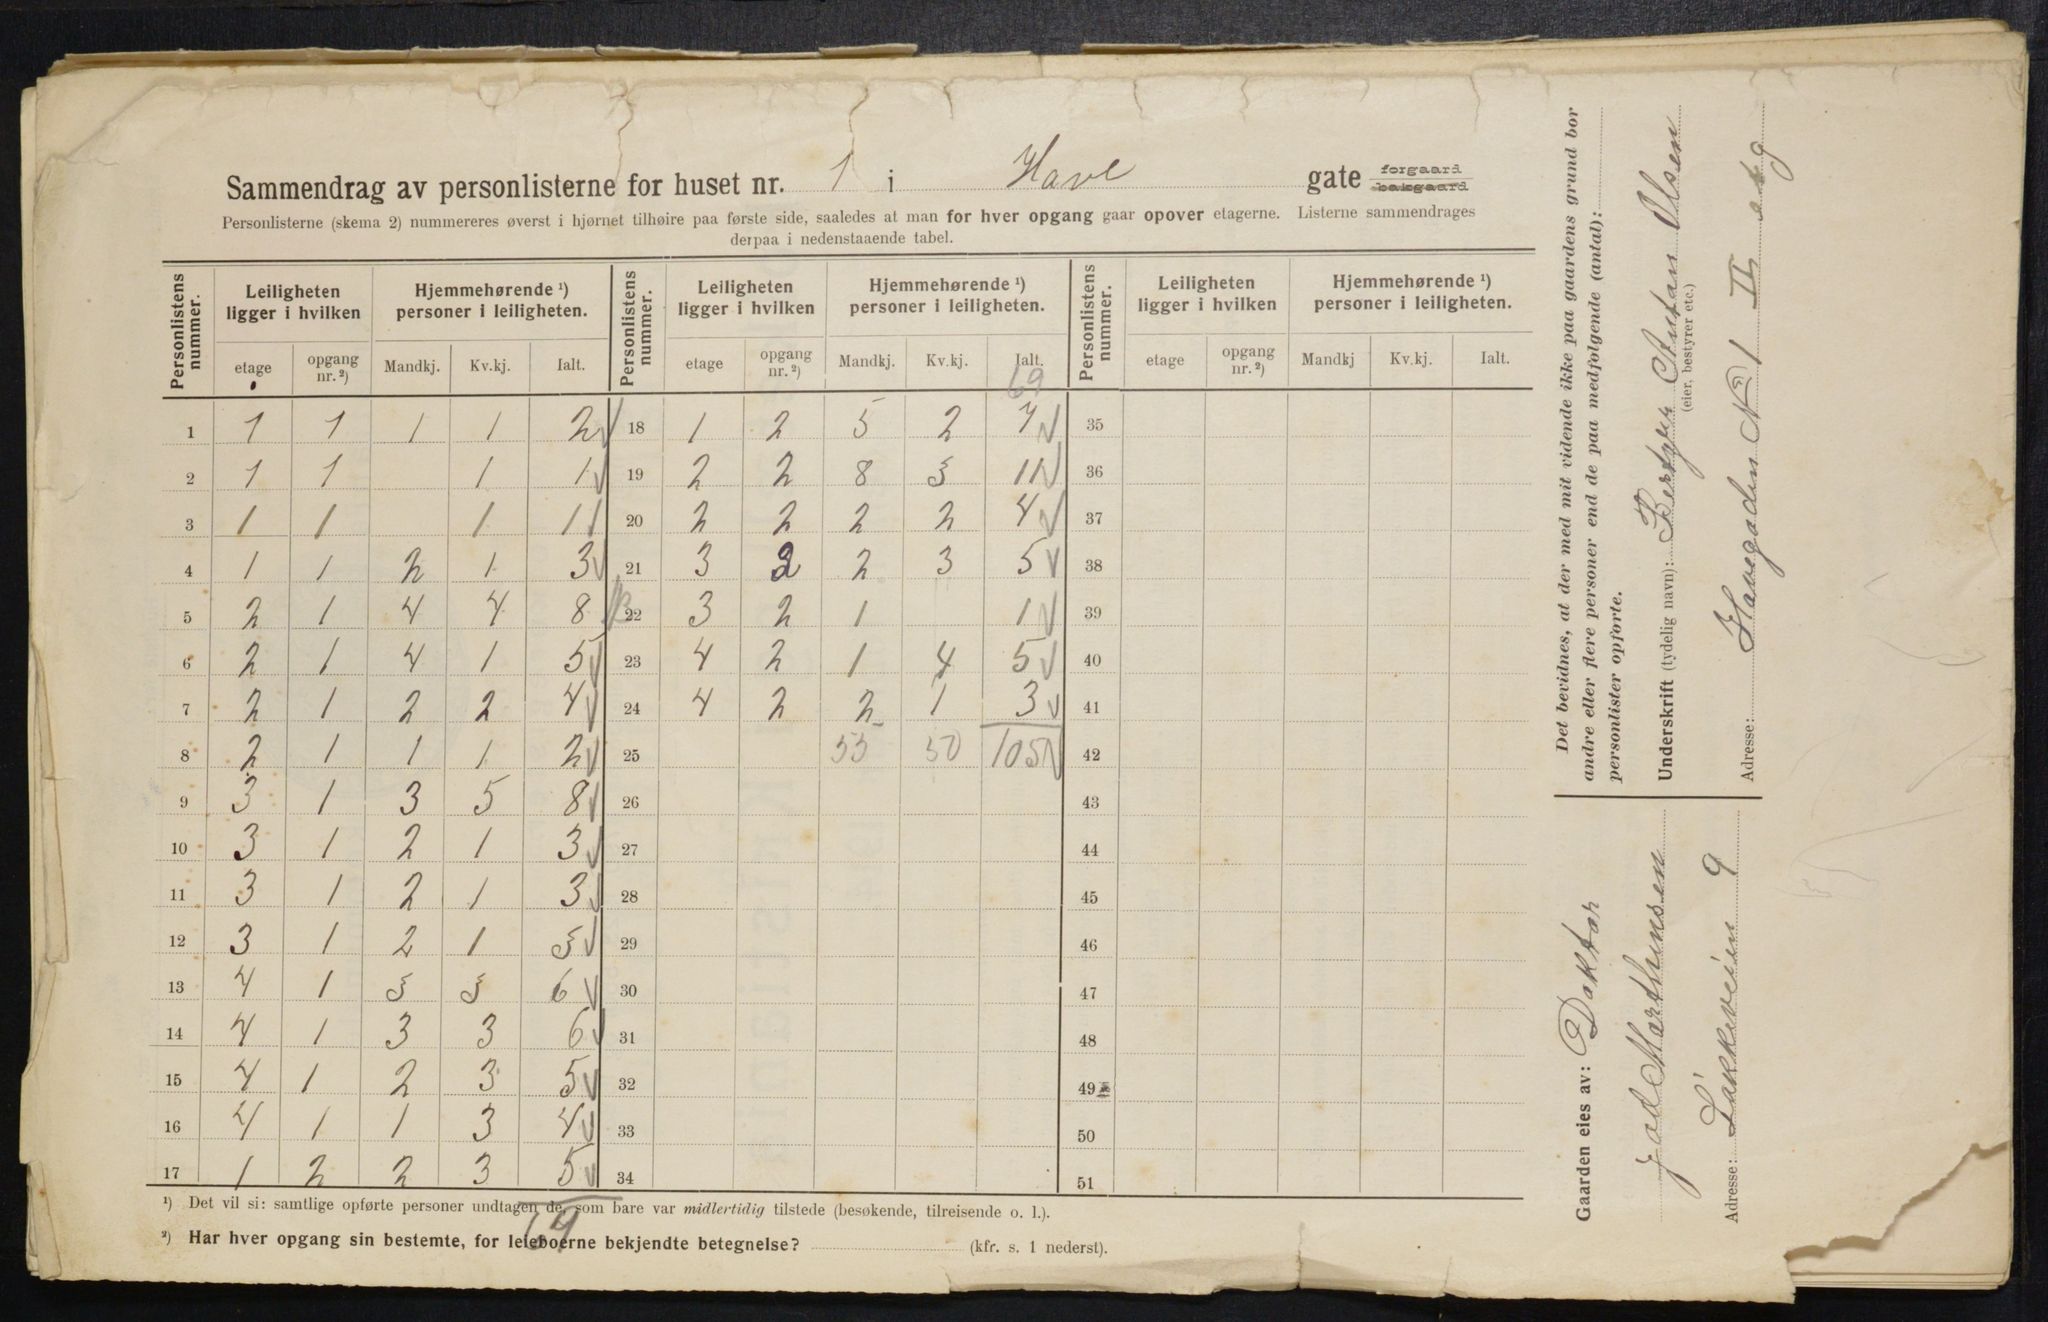 Sammendrag av personlisterne for huset nr. 1 i Have gate forgaard bakgaard
Personlisterne (skema 2) nummereres øverst i hjørnet tilhøire paa første side, saaledes at man for hver opgang gaar opover etagerne. Listerne sammendrages
derpaa i nedenstaaende tabel.
Personlistens nummer. Leiligheten ligger i hvilken Hjemmehørende ¹) personer i leiligheten. Personlistens nummer. Leiligheten ligger i hvilken Hjemmehørende ¹) personer i leiligheten. Personlistens nummer. Leiligheten ligger i hvilken Hjemmehørende ¹) personer i leiligheten.
etage opgang nr. ²) Mandkj. Kv.kj. Ialt. etage opgang nr. ²) Mandkj. Kv.kj. Ialt. etage opgang nr. ²) Mandkj Kv.kj. Ialt.
69
1 1 1 1 1 2 18 1 2 5 2 7 35
2 1 1 1 1 19 2 2 8 3 11 36
3 1 1 1 1 20 2 2 2 2 4 37
4 1 1 2 1 3 21 3 2 2 3 5 38
5 2 1 4 4 8 22 3 2 1 1 39
6 2 1 4 1 5 23 4 2 1 4 5 40
7 2 1 2 2 4 24 4 2 2 1 3 41
8 2 1 1 1 2 25 55 50 105 42
9 3 1 3 5 8 26 43
10 3 1 2 1 3 27 44
11 3 1 2 1 3 28 45
12 3 1 2 1 3 29 46
13 4 1 3 3 6 30 47
14 4 1 3 3 6 31 48
15 4 1 2 3 5 32 49
16 4 1 1 3 4 33 50
17 1 2 2 3 5 34 51
69
¹) Det vil si: samtlige opførte personer undtagen de, som bare var midlertidig tilstede (besøkende, tilreisende o. l.).
²) Har hver opgang sin bestemte, for leieboerne bekjendte betegnelse? (kfr. s. 1 nederst).
Det bevidnes, at der med mit vidende ikke paa gaardens grund bor
andre eller flere personer end de paa medfølgende (antal):
personlister opførte.
Underskrift (tydelig navn): Olsen
(eier, bestyrer etc.)
Adresse: Havegaden N 1 II etg
Gaarden eies av: Doktor
Marthinsen
Adresse: Løkkeveien 9